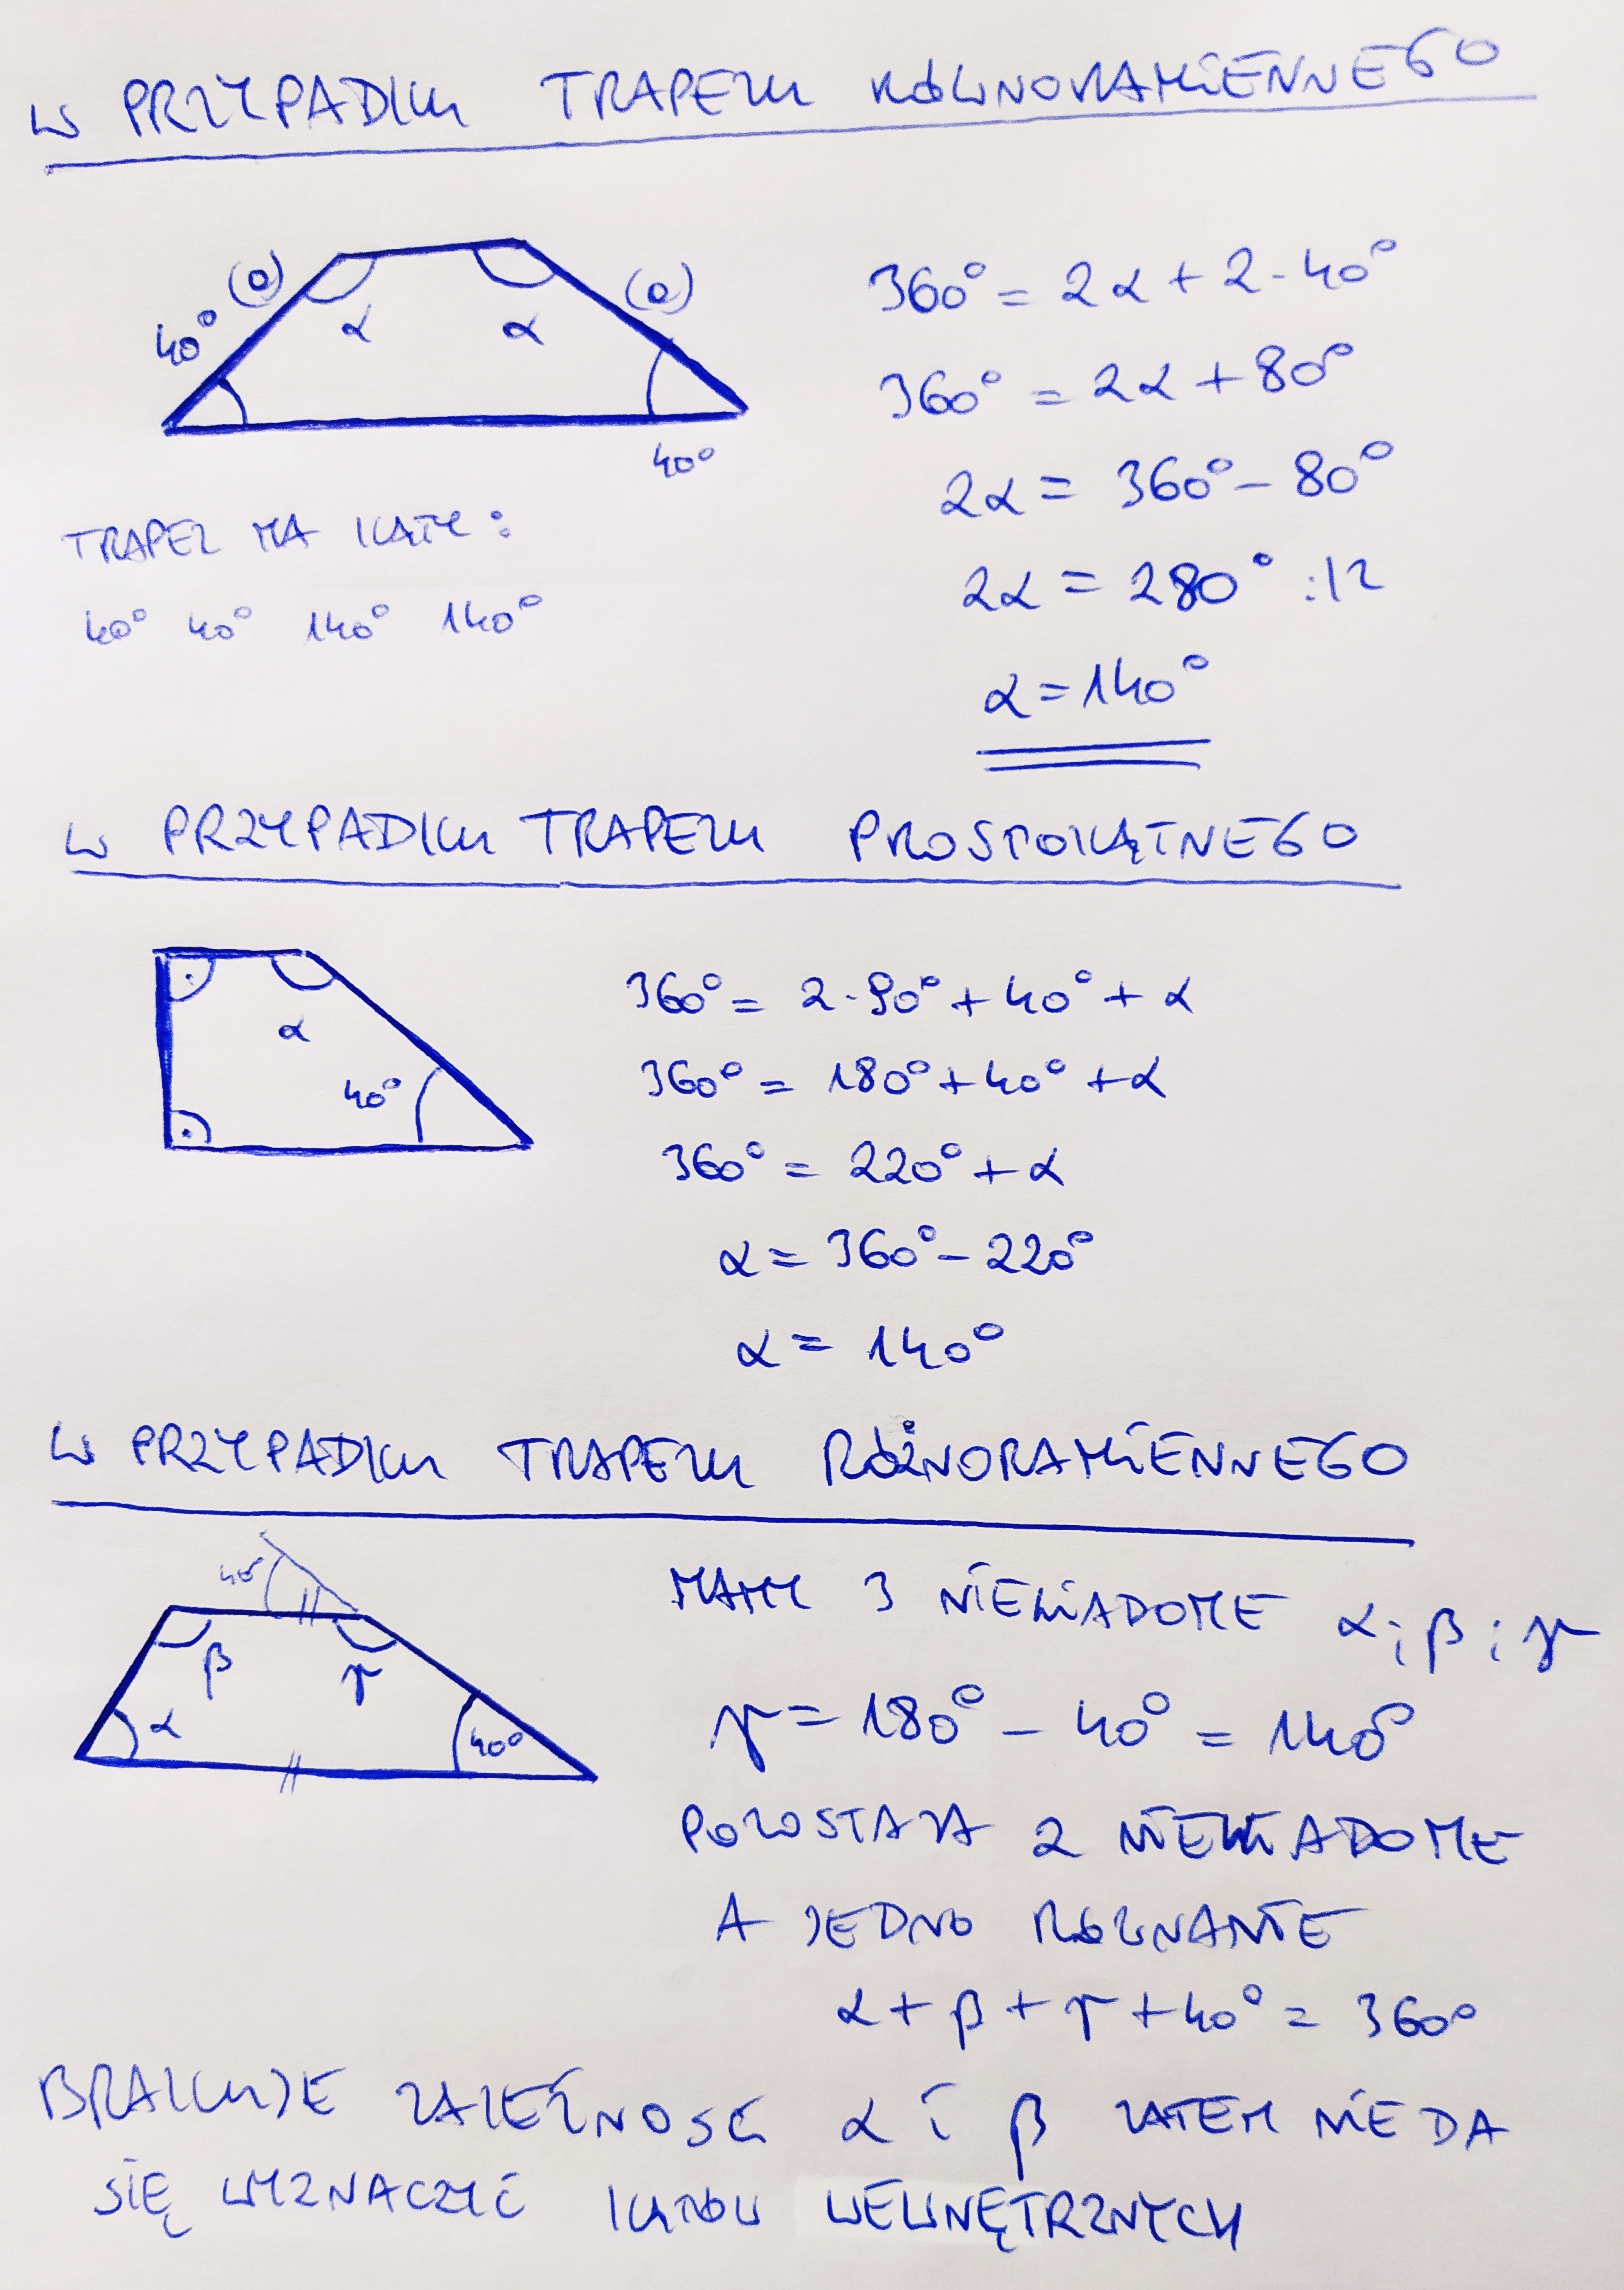 W PRZYPADKU TRAPEZU RÓWNORAMIENNEGO
(o) (o)
40° α α
40°
360° = 2α + 2·40°
360° = 2α + 80°
2α = 360° - 80°
2α = 280° :|2
α = 140°
TRAPEZ MA KĄTY:
40° 40° 140° 140°
W PRZYPADKU TRAPEZU PROSTOKĄTNEGO
α
40°
360° = 2·90° + 40° + α
360° = 180° + 40° + α
360° = 220° + α
α = 360° - 220°
α = 140°
W PRZYPADKU TRAPEZU RÓŻNORAMIENNEGO
40°
β γ
α 40°
MAMY 3 NIEWIADOME α i β i γ
γ = 180° - 40° = 140°
POZOSTAJĄ 2 NIEWIADOME
A JEDNO RÓWNANIE
α + β + γ + 40° = 360°
BRAKUJE ZALEŻNOŚĆ α i β ZATEM NIE DA
SIĘ WYZNACZYĆ KĄTÓW WEWNĘTRZNYCH